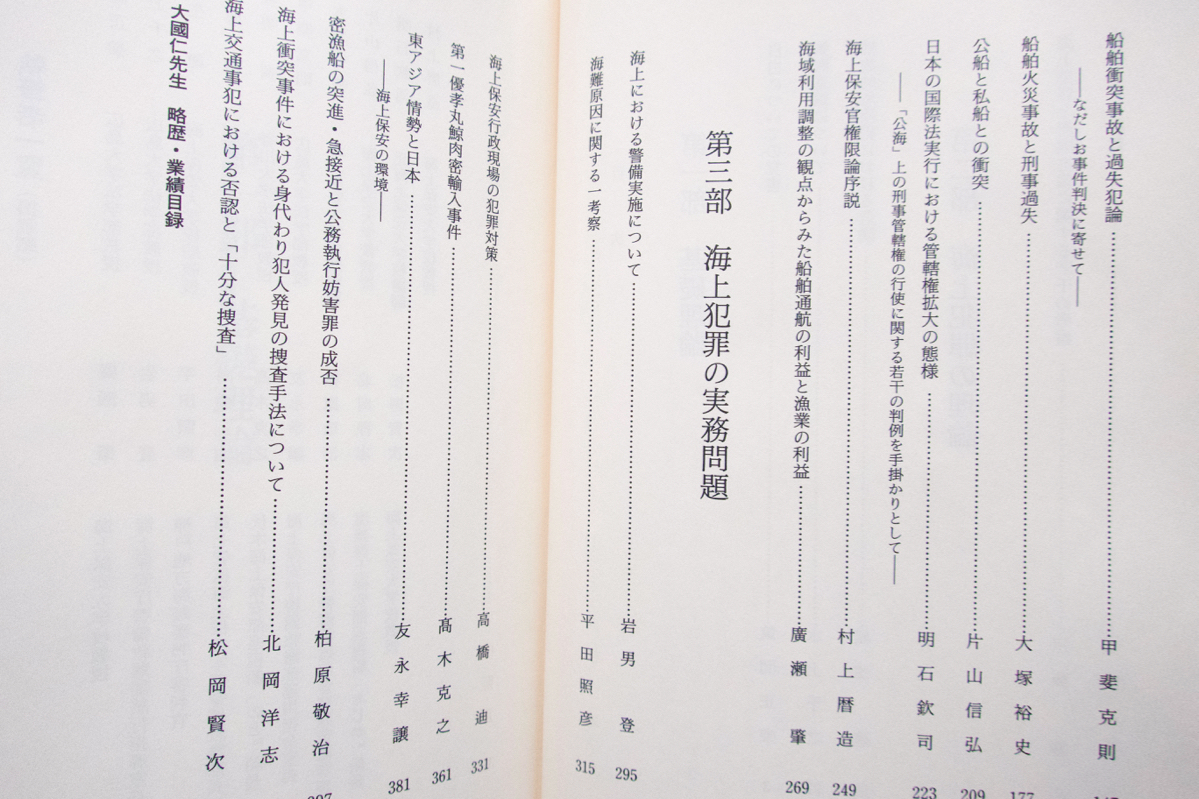 船舶衝突事故と過失犯論……甲斐克則
――なだしお事件判決に寄せて――
船舶火災事故と刑事過失……大塚裕史 177
公船と私船との衝突……片山信弘 209
日本の国際法実行における管轄権拡大の態様……明石欽司 223
――「公海」上の刑事管轄権の行使に関する若干の判例を手掛かりとして――
海上保安官権限論序説……村上暦造 249
海域利用調整の観点からみた船舶通航の利益と漁業の利益……廣瀬肇 269
第三部 海上犯罪の実務問題
海上における警備実施について……岩男登 295
海難原因に関する一考察……平田照彦 315
海上保安行政現場の犯罪対策……高橋迪 331
第一優孝丸鯨肉密輸入事件……髙木克之 361
東アジア情勢と日本……友永幸譲 381
――海上保安の環境――
密漁船の突進・急接近と公務執行妨害罪の成否……柏原敬治
海上衝突事件における身代わり犯人発見の捜査手法について……北岡洋志
海上交通事犯における否認と「十分な捜査」……松岡賢次
大國仁先生 略歴・業績目録